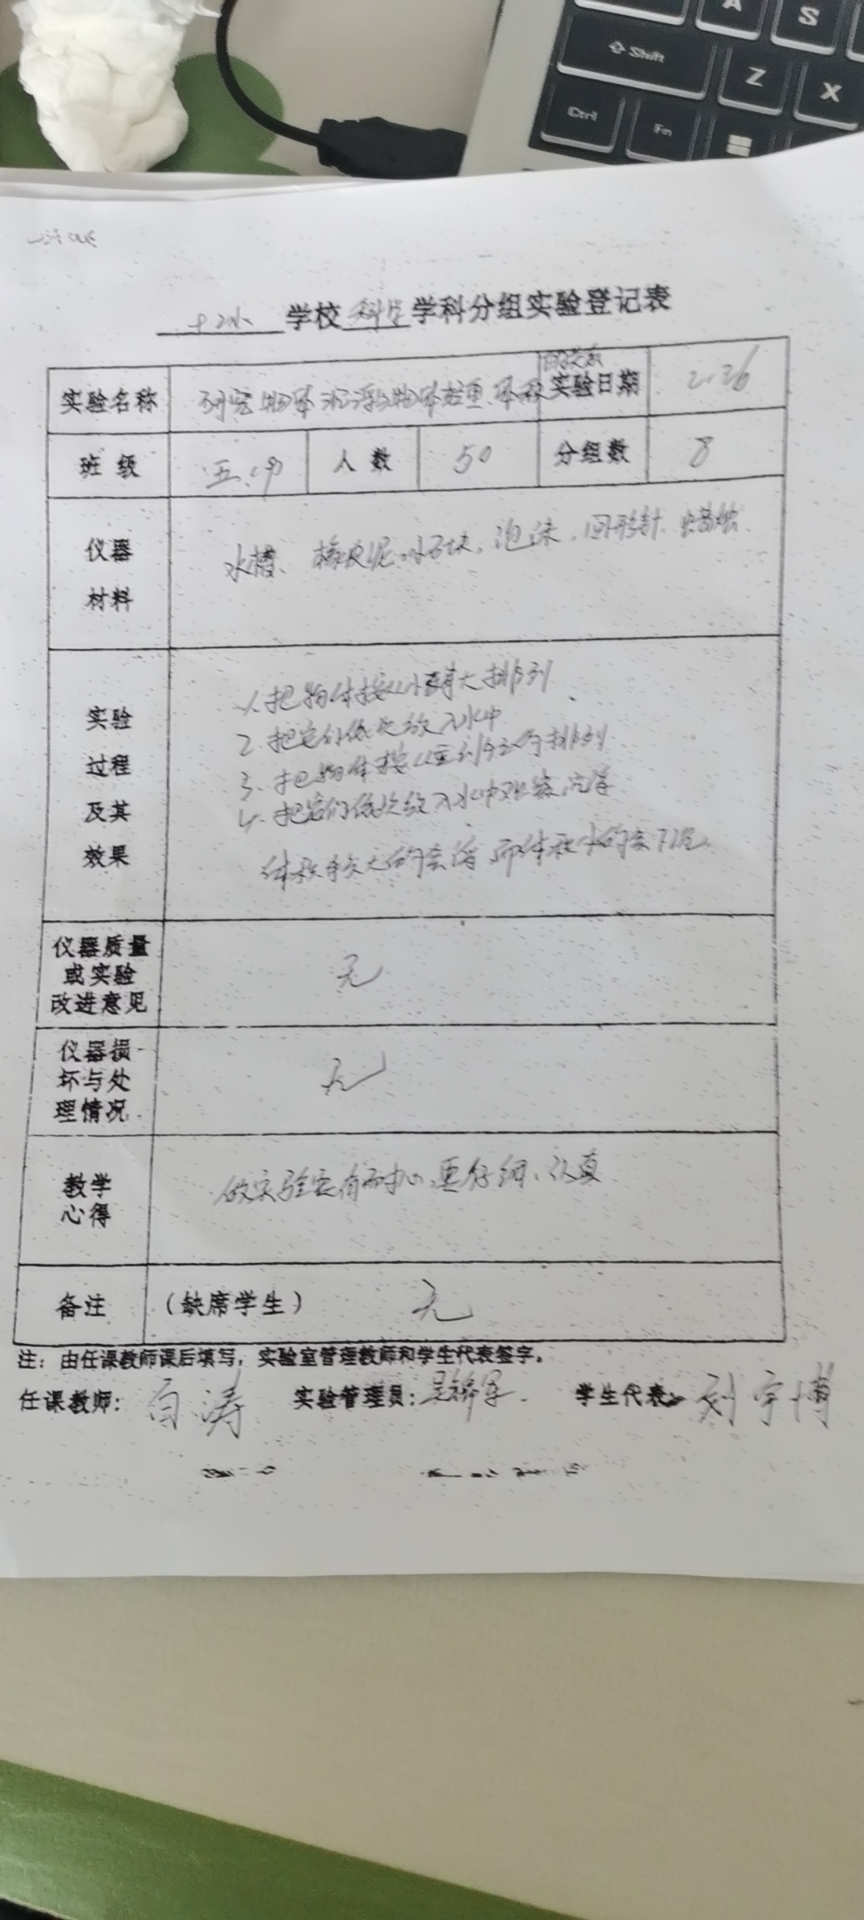 A
S
Shift
Z
X
Ctrl
Fn
学校 科学 学科分组实验登记表
的关系
实验名称 研究物体沉浮与物体轻重、体积 实验日期 2.26
班级 五.(1) 人数 50 分组数 8
仪器
材料
水槽、橡皮泥、小石块、泡沫、回形针、蜡烛
实验
过程
及其
效果
1. 把物体按从小到大排列
2. 把它们依次放入水中
3. 把物体按从重到轻排列
4. 把它们依次放入水中观察沉浮
体积大的会浮,而体积小的会下沉
仪器质量
或实验
改进意见
无
仪器损
坏与处
理情况
无
教学
心得
做实验要有耐心、要仔细、认真
备注 (缺席学生) 无
注:由任课教师课后填写,实验室管理教师和学生代表签字。
任课教师:白涛 实验管理员: 学生代表:刘宇博